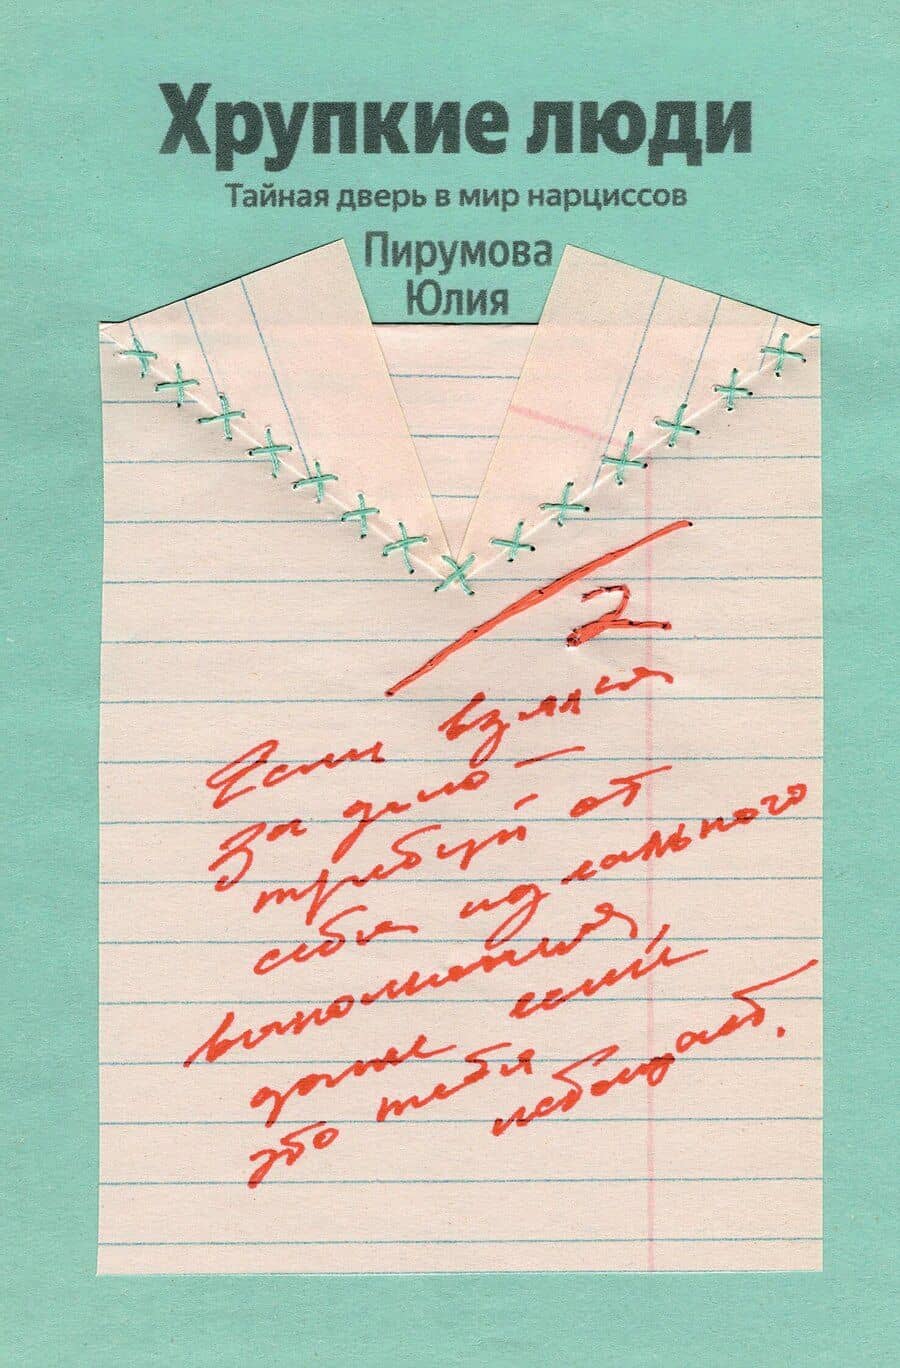 Хрупкие люди
Тайная дверь в мир нарциссов
Пирумова
Юлия
2
Если взялся
за дело —
требуй от
себя идеального
выполнения,
даже если
это тебя
истощает.